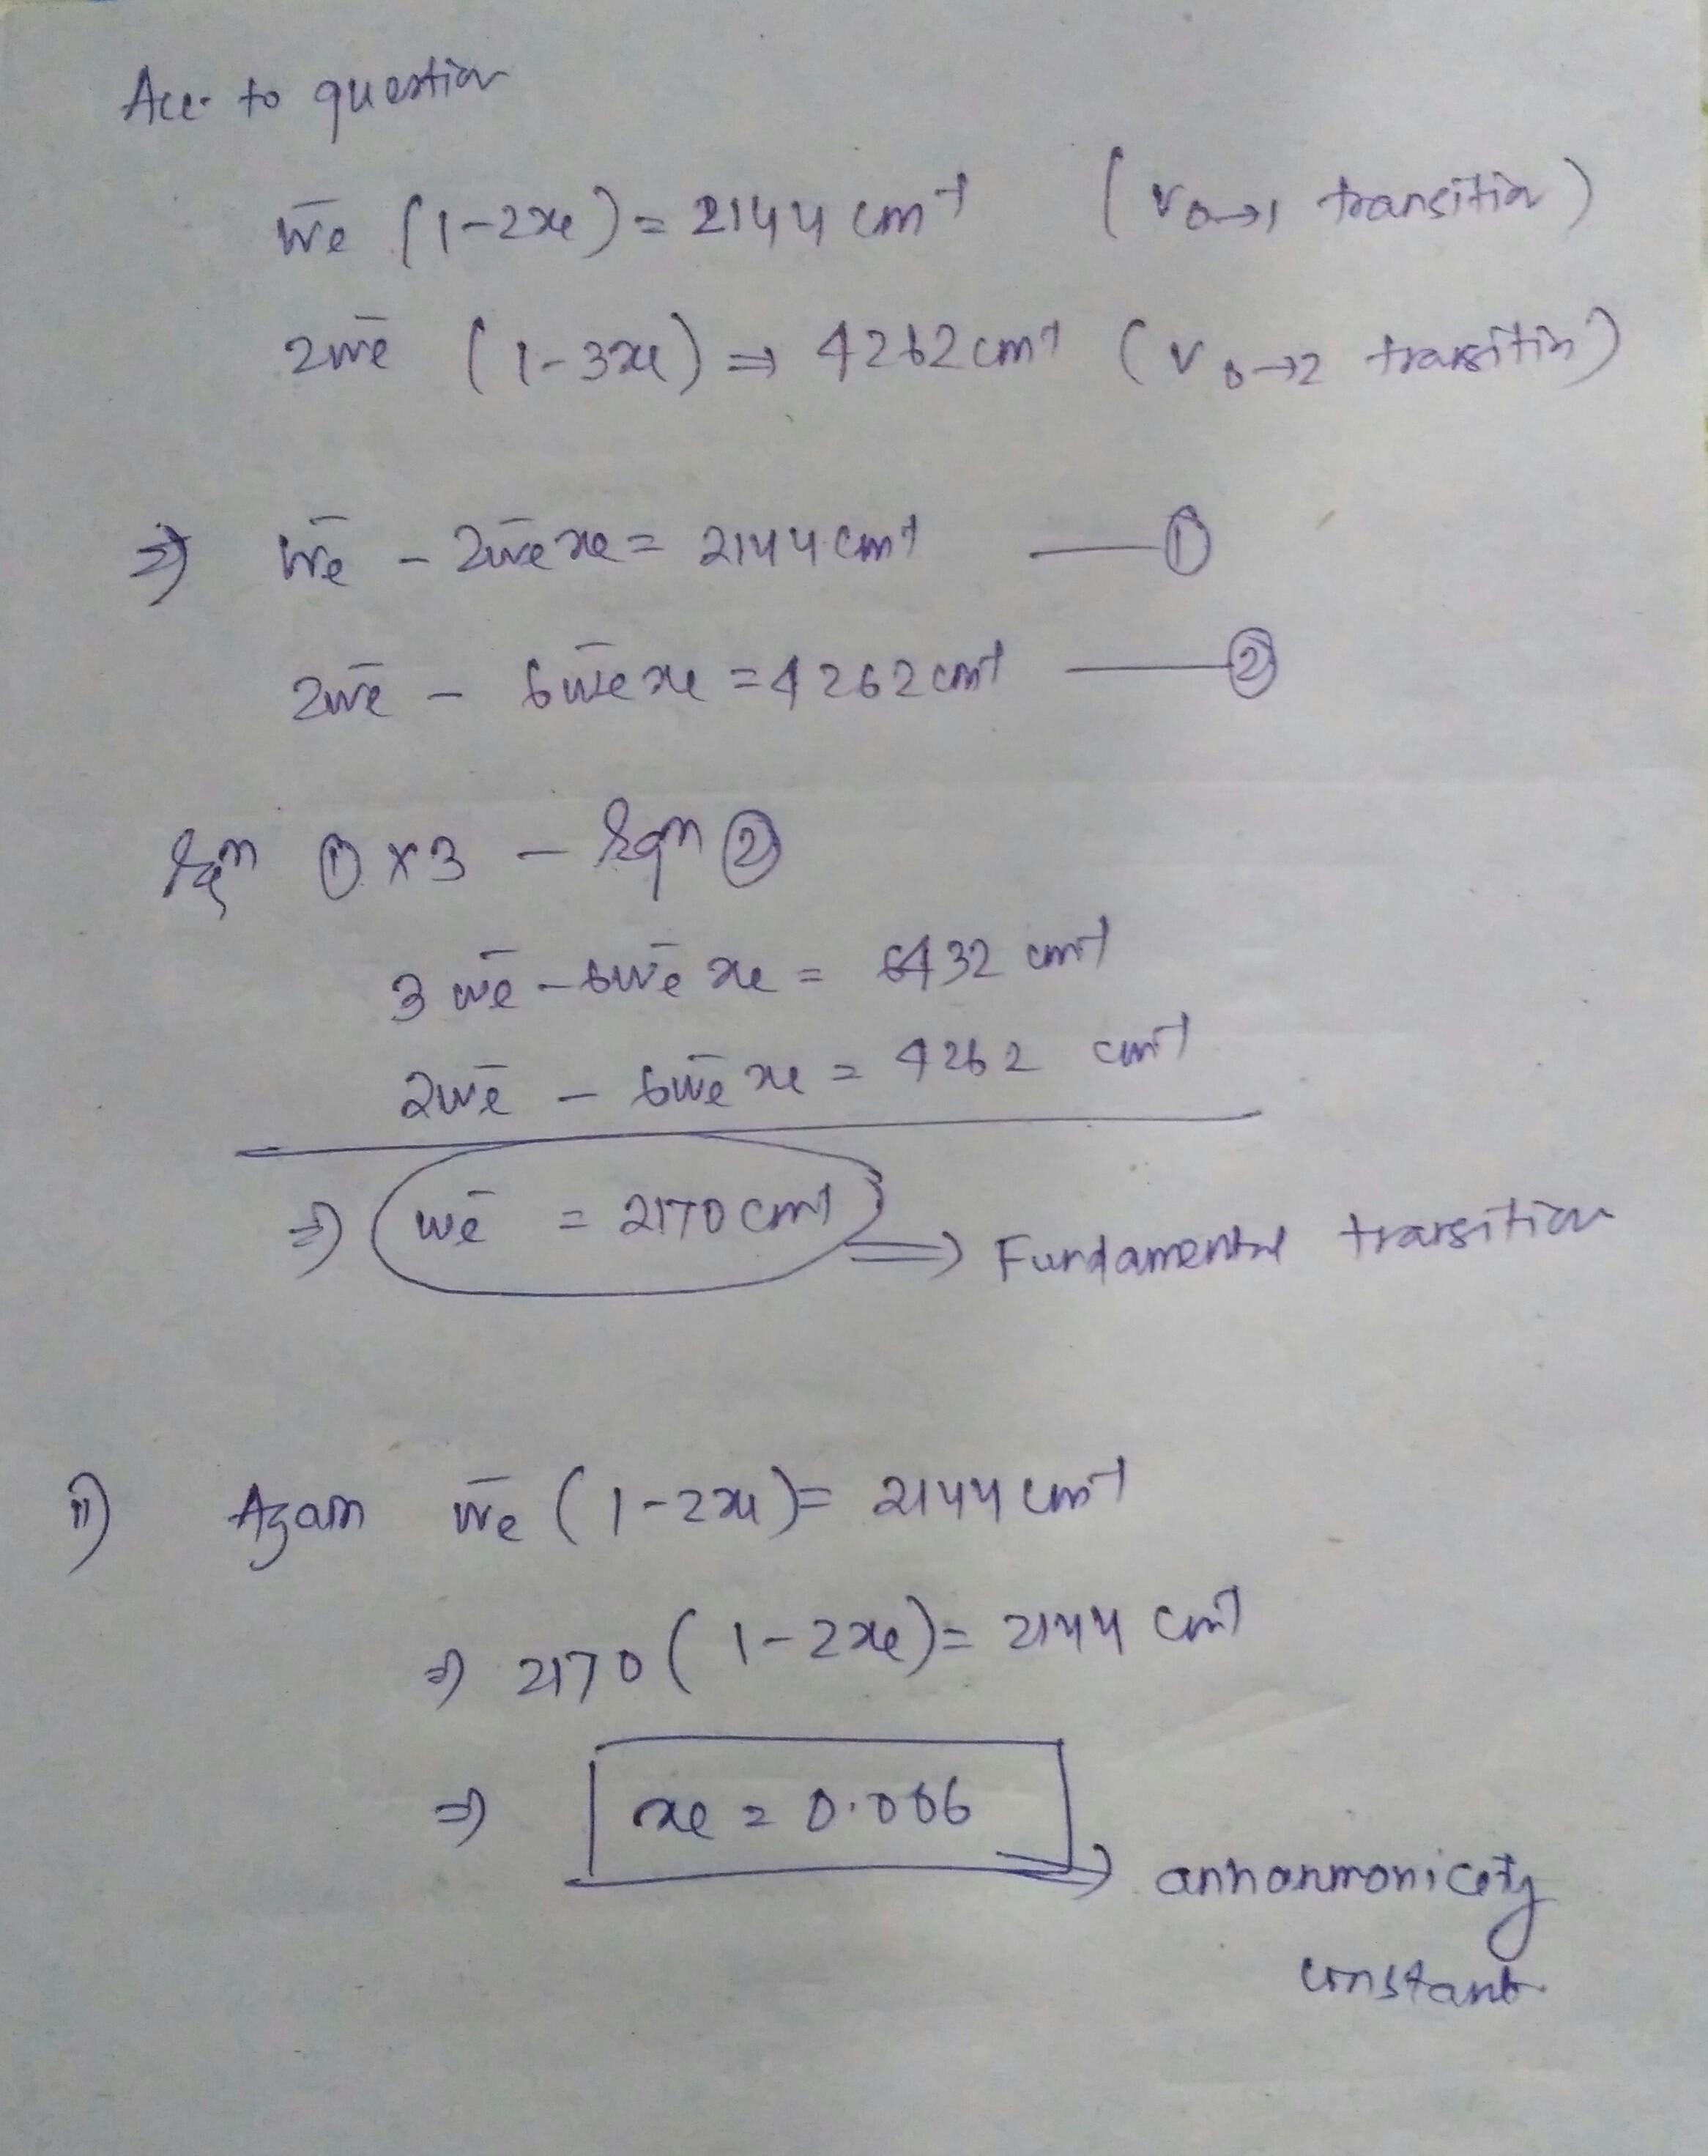 Acc. to question
w̄e (1-2xe) = 2144 cm⁻¹ (v0→1 transition)
2w̄e (1-3xe) ⇒ 4262 cm⁻¹ (v0→2 transition)
⇒ w̄e - 2w̄e xe = 2144 cm⁻¹ — ①
2w̄e - 6w̄e xe = 4262 cm⁻¹ — ②
Eqn ① × 3 - Eqn ②
3 w̄e - 6w̄e xe = 6432 cm⁻¹
2w̄e - 6w̄e xe = 4262 cm⁻¹
⇒ w̄e = 2170 cm⁻¹ ⇒ Fundamental transition
ii) Again w̄e (1-2xe) = 2144 cm⁻¹
⇒ 2170 (1-2xe) = 2144 cm⁻¹
⇒ xe = 0.006 ⇒ anharmonicity
constant